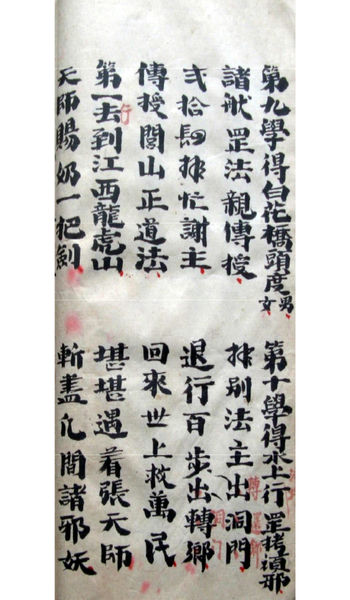 第九學得白花橋頭度男女
第十學得水上行罡拷邪
諸般罡法親傳授
拜別法主出洞門
弍拾四拜忙謝主
退行百步出轉鄉
傳授閭山正道法
回來世上救萬民
第一去到江西龍虎山
行
堪堪遇着張天師
天師賜奶一把劍
斬盡凡間諸邪妖